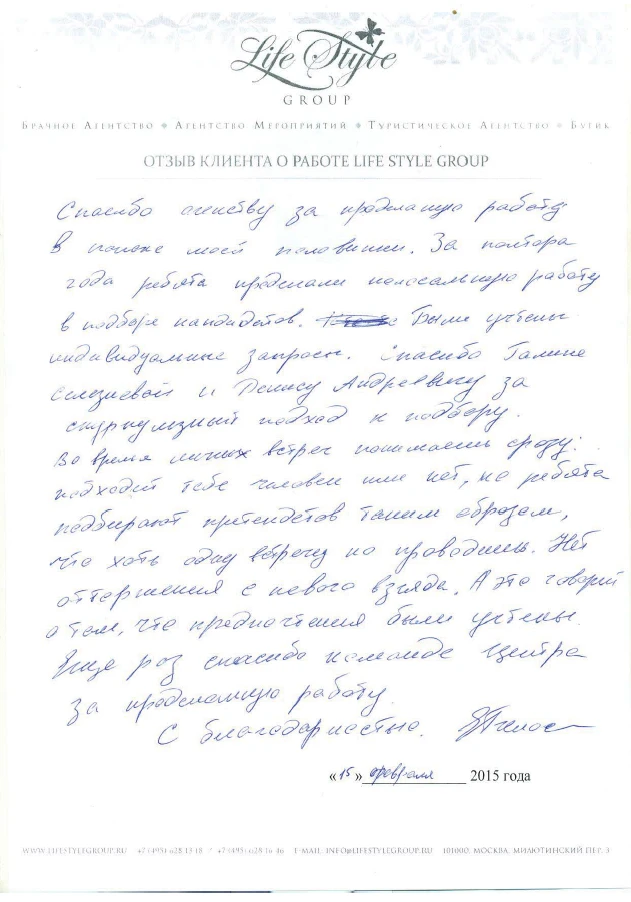 Life Style
GROUP
Брачное Агентство • Агентство Мероприятий • Туристическое Агентство • Бутик
ОТЗЫВ КЛИЕНТА О РАБОТЕ LIFE STYLE GROUP
Спасибо агенству за проделаную работу
В поиске моей половинки. За полтора
года ребята проделали колосальную работу
в подборе кандидатов. Были учтены
индивидуальные запросы. Спасибо Галине
и Денису Андреевичу за
скурпулезный подход к подбору.
Во время личных встреч понимаешь сразу:
подходит тебе человек или нет, но ребята
подбирают претендетов таким образом,
что хоть одну встречу но проводишь. Нет
отторжения с первого взгляда. А это говорит
о том, что предпочтения были учтены.
Еще раз спасибо команде Центра
за проделанную работу.
С благодарностью.
«15» февраля 2015 года
WWW.LIFESTYLEGROUP.RU +7 (495) 628 13 18 / +7 (495) 628 16 46 E-MAIL: INFO@LIFESTYLEGROUP.RU 101000, МОСКВА, МИЛЮТИНСКИЙ ПЕР. 3